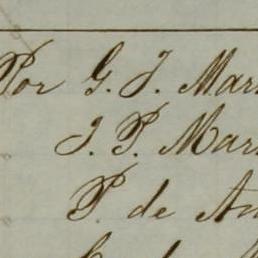 Por G. J. Mar
J. P. Mar
P. de A